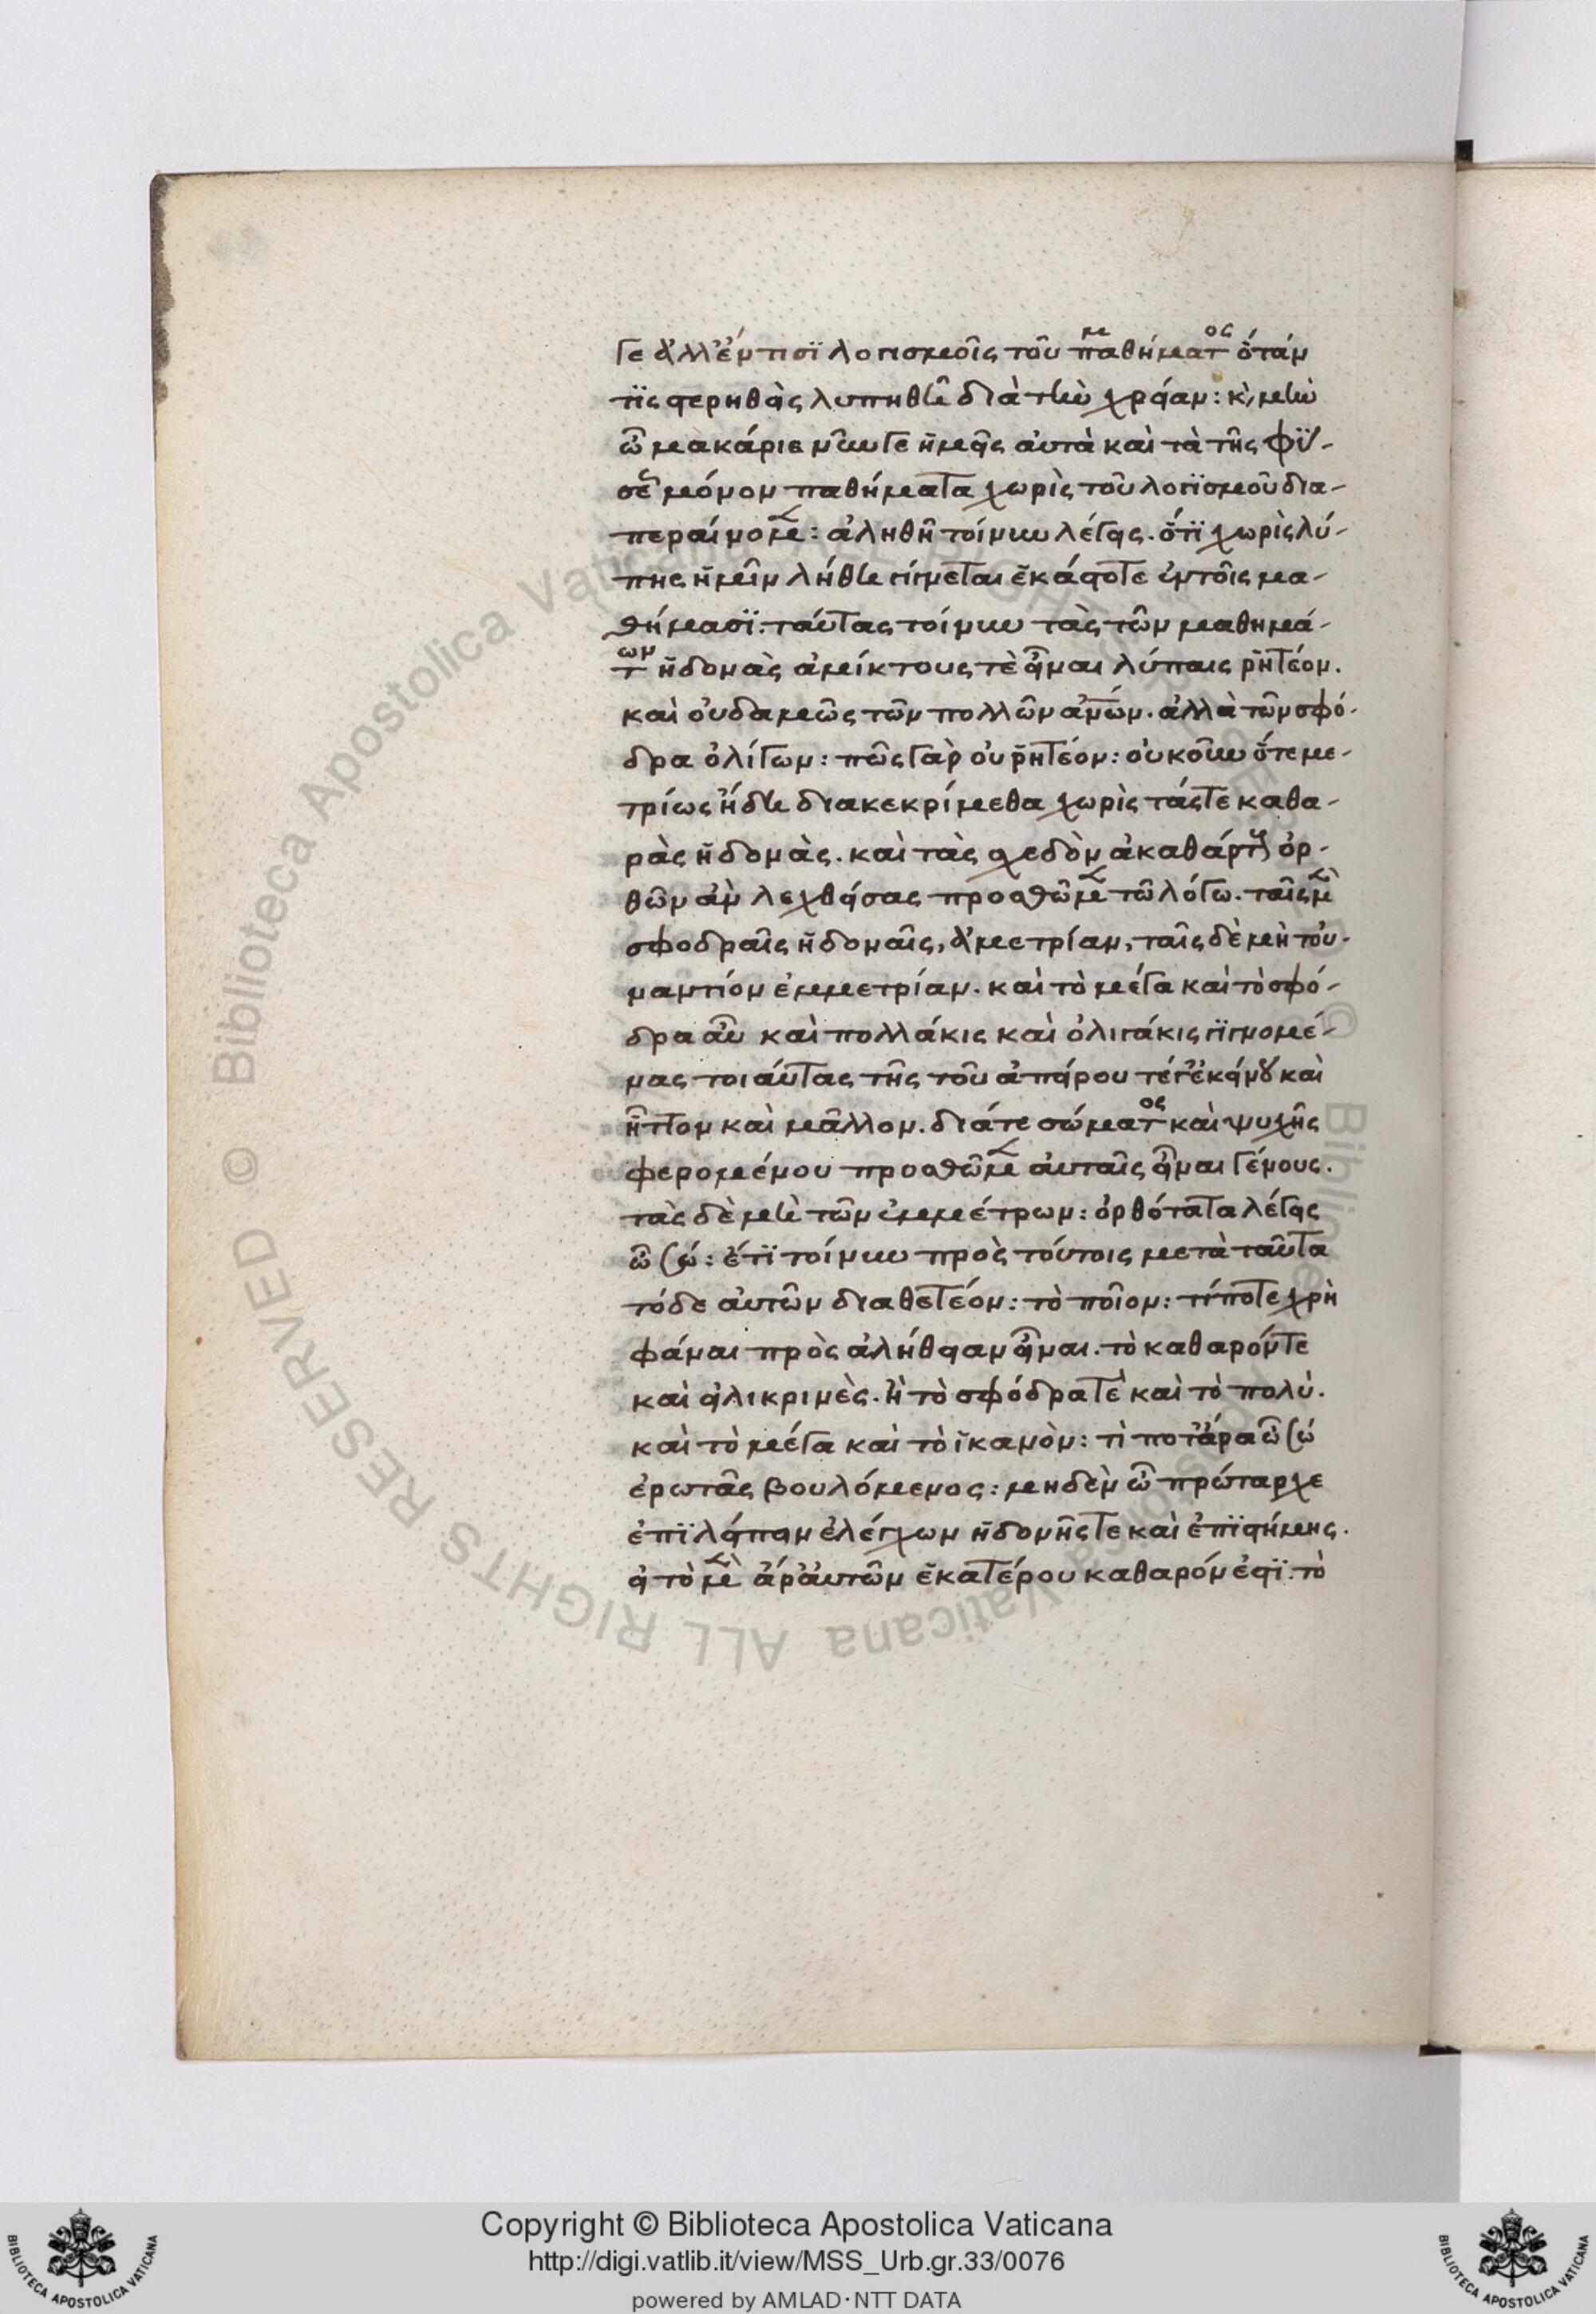 γε ἀλλ' ἔν τισι λογισμοῖς τοῦ παθήματος ὅταν
τις στερηθεὶς λυπηθῆ διὰ τὴν χρείαν: κ, μὴν
ὦ μακάριε νῦν γε ἡμεῖς αὐτὰ καὶ τὰ τῆς φύ-
σεως μόνον παθήματα χωρὶς τοῦ λογισμοῦ δια-
περαίνομεν: ἀληθῆ τοίνυν λέγεις. ὅτι χωρὶς λύ-
πης ἡμῖν λήθη γίγνεται ἑκάστοτε ἐν τοῖς μα-
θήμασι. ταύτας τοίνυν τὰς τῶν μαθημά-
των ἡδονὰς ἀμίκτους τὲ εἶναι λύπαις ῥητέον.
καὶ οὐδαμῶς τῶν πολλῶν ἀνων. ἀλλὰ τῶν σφό-
δρα ὀλίγων: πῶς γὰρ οὐ ῥητέον: οὐκοῦν ὅτε με-
τρίως ἤδη διακεκρίμεθα χωρὶς τάς τε καθα-
ρὰς ἡδονὰς. καὶ τὰς σχεδὸν ἀκαθάρτους ὀρ-
θῶν ἀν λεχθείσας προσθῶμεν τῶ λόγω. ταῖς μὲν
σφοδραῖς ἡδοναῖς, ἀμετρίαν, ταῖς δὲ μὴ τοὐ-
ναντίον ἐμμετρίαν. καὶ τὸ μέγα καὶ τὸ σφό-
δρα αὖ καὶ πολλάκις καὶ ὀλιγάκις γιγνομέ-
νας τοιαύτας τῆς τοῦ ἀπείρου τέ γ' ἐκείνου καὶ
ἧττον καὶ μᾶλλον. διά τε σώματος καὶ ψυχῆς
φερομένου προσθῶμεν αὐταῖς εἶναι γένους.
τὰς δὲ μὴ τῶν ἐμμέτρων: ὀρθότατα λέγεις
ὦ σώ: ἔτι τοίνυν πρὸς τούτοις μετὰ ταῦτα
τόδε αὐτῶν διαθετέον: τὸ ποῖον: τί ποτε χρὴ
φάναι πρὸς ἀλήθειαν εἶναι. τὸ καθαρόν τε
καὶ εἰλικρινὲς. ἢ τὸ σφόδρα τὲ καὶ τὸ πολύ.
καὶ τὸ μέγα καὶ τὸ ἱκανὸν: τὶ ποτ' ἄρα ὦ σώ
ἐρωτᾶς βουλόμενος: μηδὲν ὦ πρώταρχε
ἐπιλείπειν ἐλέγχων ἡδονῆς τε καὶ ἐπιστήμης.
εἰ τὸ μὲν ἄρ' αὐτῶν ἑκατέρου καθαρόν ἐστι. τὸ
Copyright © Biblioteca Apostolica Vaticana
http://digi.vatlib.it/view/MSS_Urb.gr.33/0076
powered by AMLAD·NTT DATA